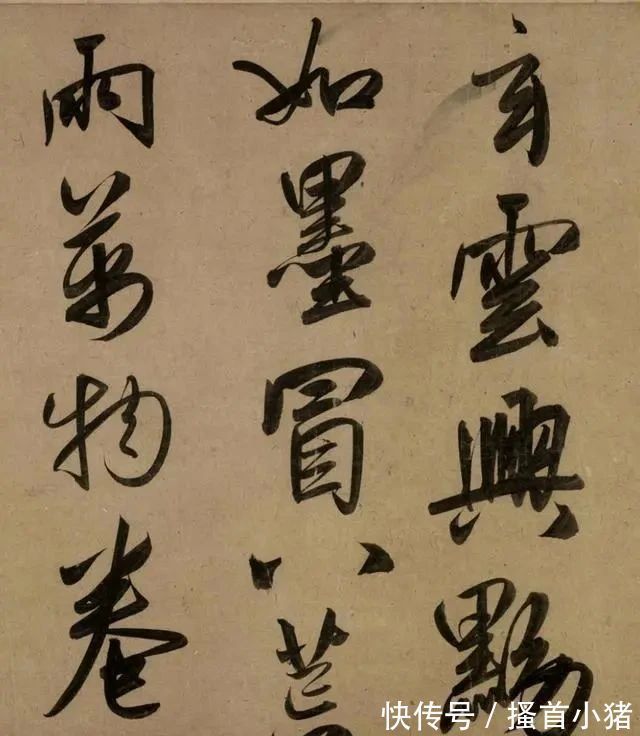 玄雲興
如墨冒八荒
雨萬物卷
快传号 / 搔首小猪